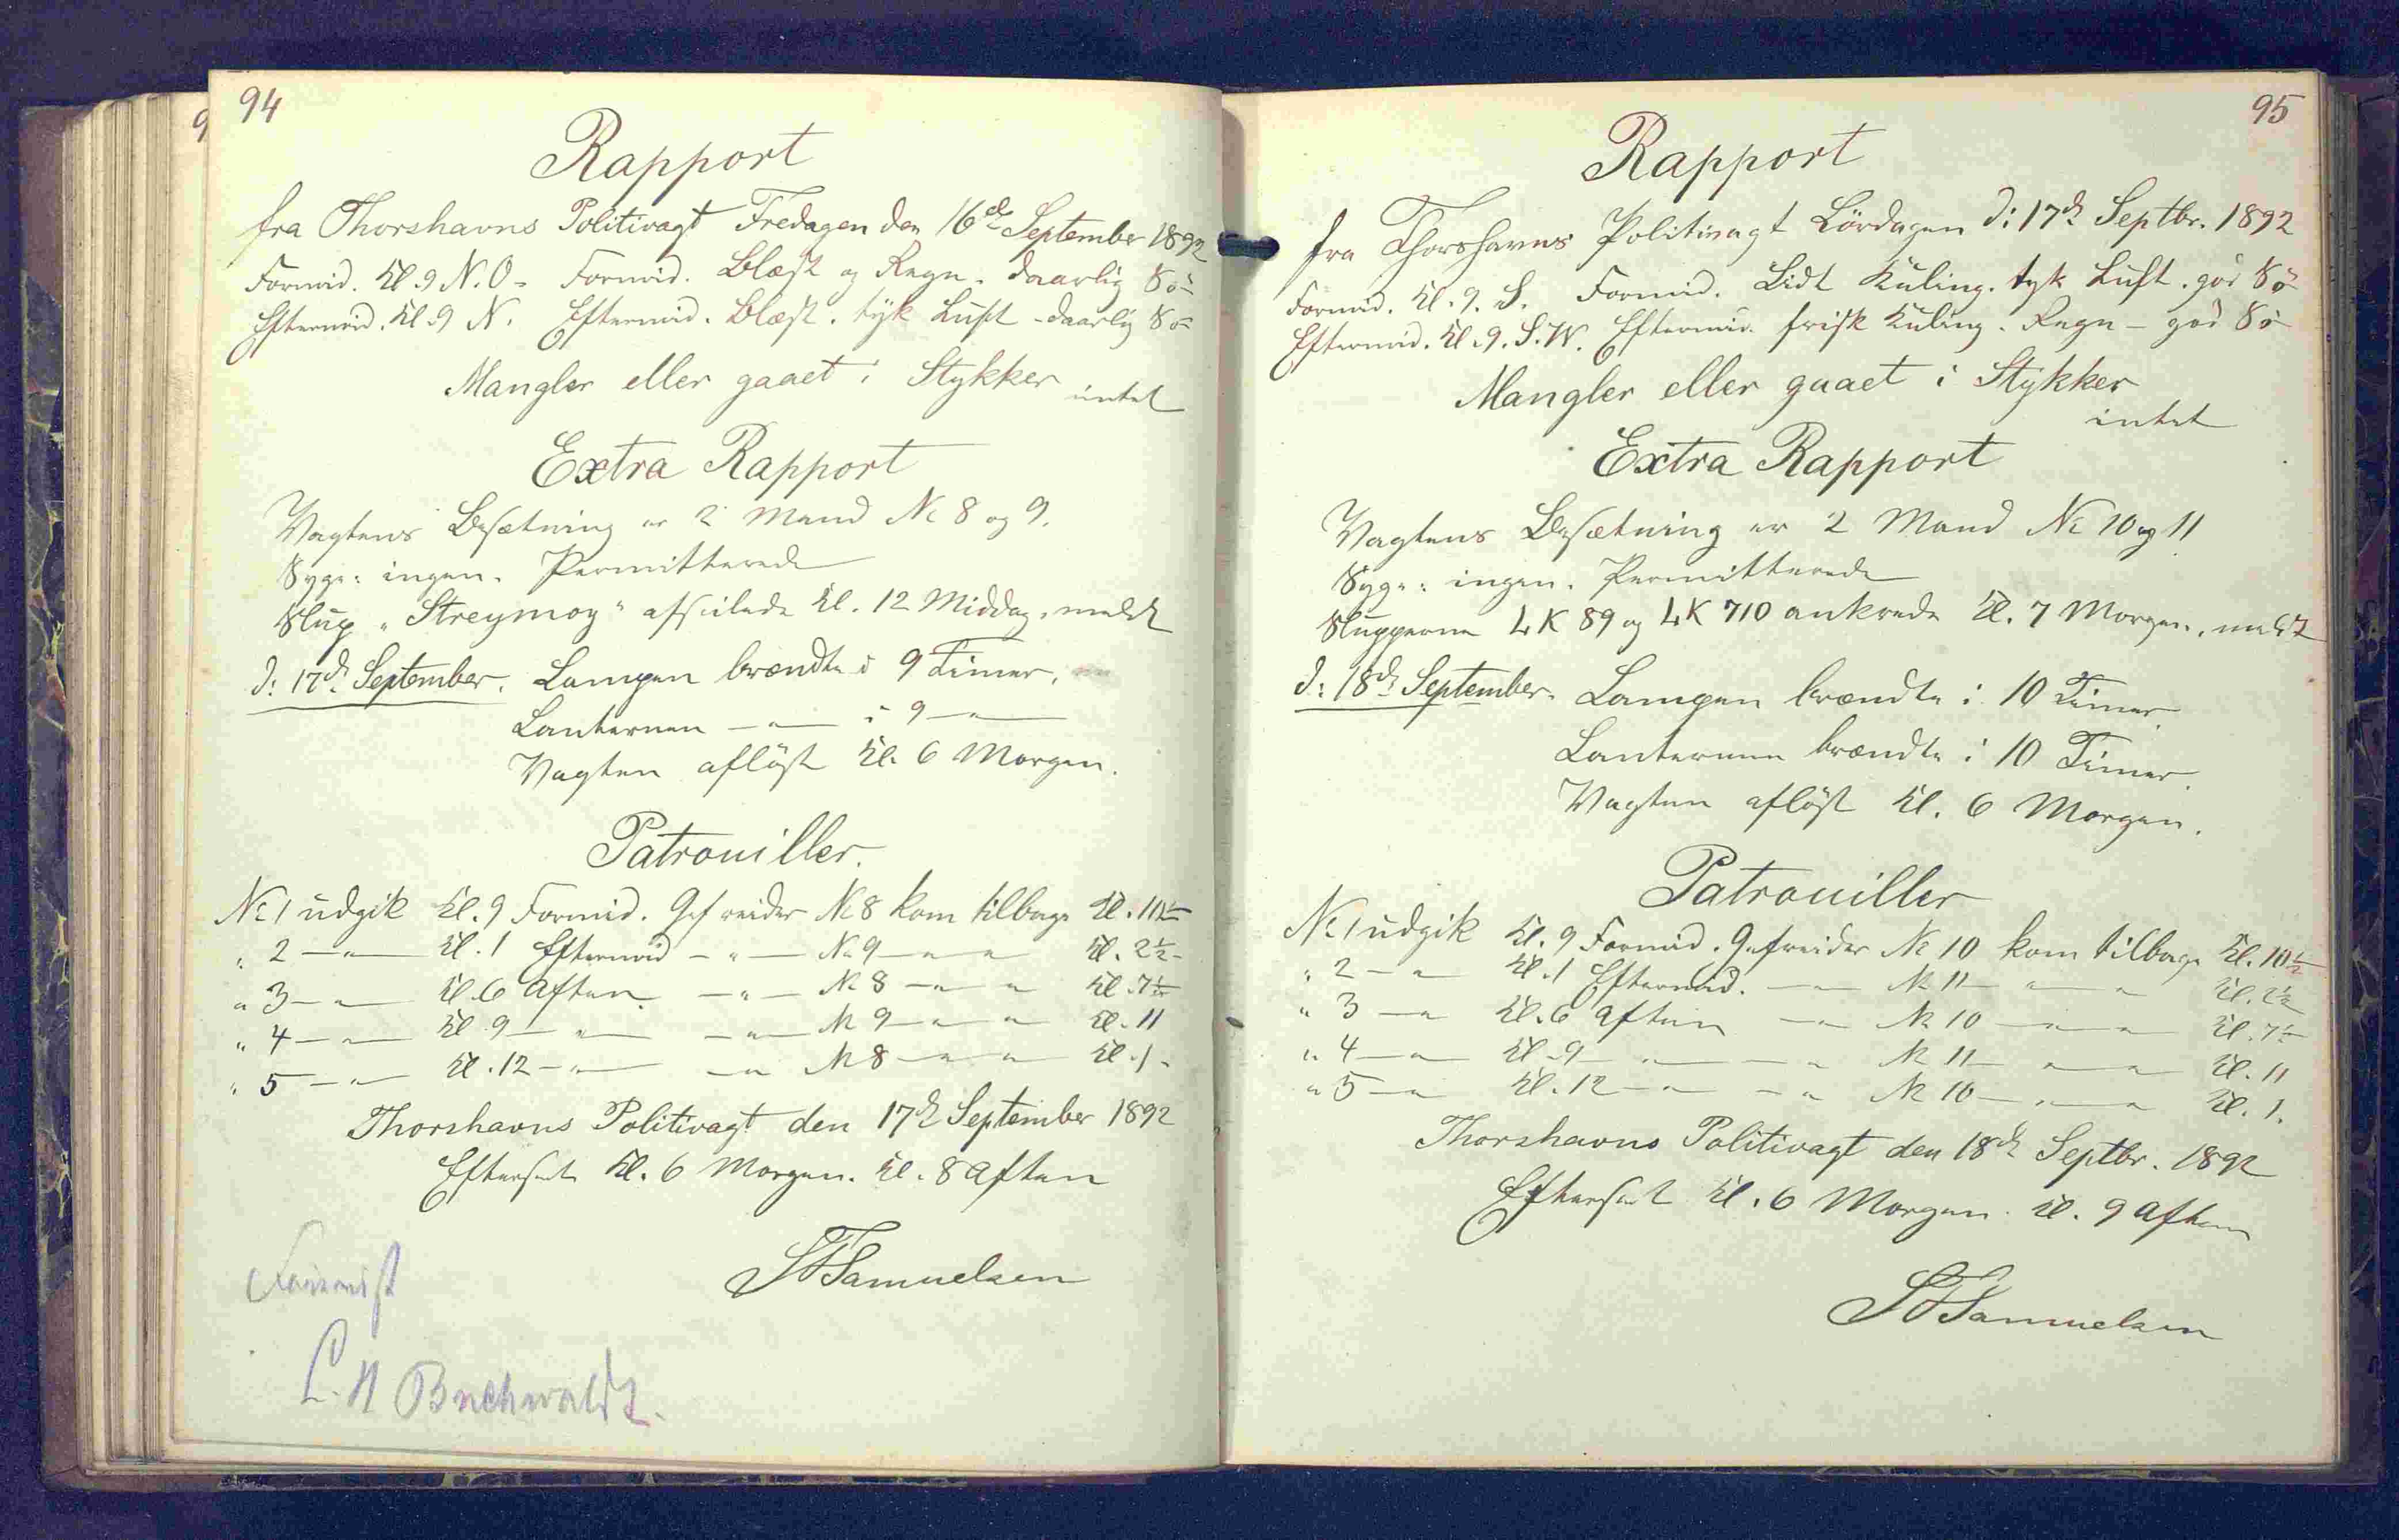 94
Rapport
fra Thorshavns Politivagt Fredagen den 16de September 1892
Formid. Kl. 9 N.O - Formid. Blæst og Regn - daarlig Sö
Eftermid. Kl. 9 N. Eftermid. Blæst. tyk Luft - daarlig Sö
Mangler eller gaaet i Stykker intet
Extra Rapport
Vagtens Besætning er 2 Mand No 8 og 9.
Syge: ingen. Permitterede
Slup "Streymoy" afseilede Kl. 12 Middag, meldt
d: 17de September. Lampen brændte i 9 Timer.
Lanternen — " — i 9 — " —
Vagten aflöst Kl. 6 Morgen.
Patrouiller.
No 1 udgik Kl. 9 Formid. Gefreider No 8 kom tilbage Kl. 10½
" 2 — " — Kl. 1 Eftermid — " — No 9 — " — " Kl. 2½
" 3 — " — Kl. 6 Aften — " — No 8 — " — " Kl. 7½
" 4 — " — Kl. 9 — " — — " — No 9 — " — " Kl. 11
" 5 — " — Kl. 12 — " — — " No 8 — " — " Kl. 1.
Thorshavns Politivagt den 17de September 1892
Efterset Kl. 6 Morgen. Kl. 8 Aften
Samuelsen
Buchwaldt.
95
Rapport
fra Thorshavns Politivagt Lördagen d: 17de Septbr. 1892
Formid. Kl. 9. S. Formid. Lidt Kuling. tyk Luft. god Sö
Eftermid. Kl. 9. S.W. Eftermid. frisk Kuling. Regn - god Sö
Mangler eller gaaet i Stykker
intet
Extra Rapport
Vagtens Besætning er 2 Mand No 10 og 11
Syge: ingen. Permitterede
Slupperne LK 89 og LK 710 ankrede Kl. 7 Morgen, meldt
d: 18de September. Lampen brændte i 10 Timer.
Lanternen brændte i 10 Timer.
Vagten aflöst Kl. 6 Morgen.
Patrouiller
No 1 udgik Kl. 9 Formid. Gefreider No 10 kom tilbage Kl. 10½
" 2 — " Kl. 1 Eftermid. — " — No 11 — " — " Kl. 2½
" 3 — " Kl. 6 Aften — " No 10 — " — " Kl. 7½
" 4 — " Kl. 9 — " — — " No 11 — " — " Kl. 11
" 5 — " Kl. 12 — " — " No 10 — " — " Kl. 1.
Thorshavns Politivagt den 18de Septbr. 1892
Efterset Kl. 6 Morgen. Kl. 9 Aften
Samuelsen